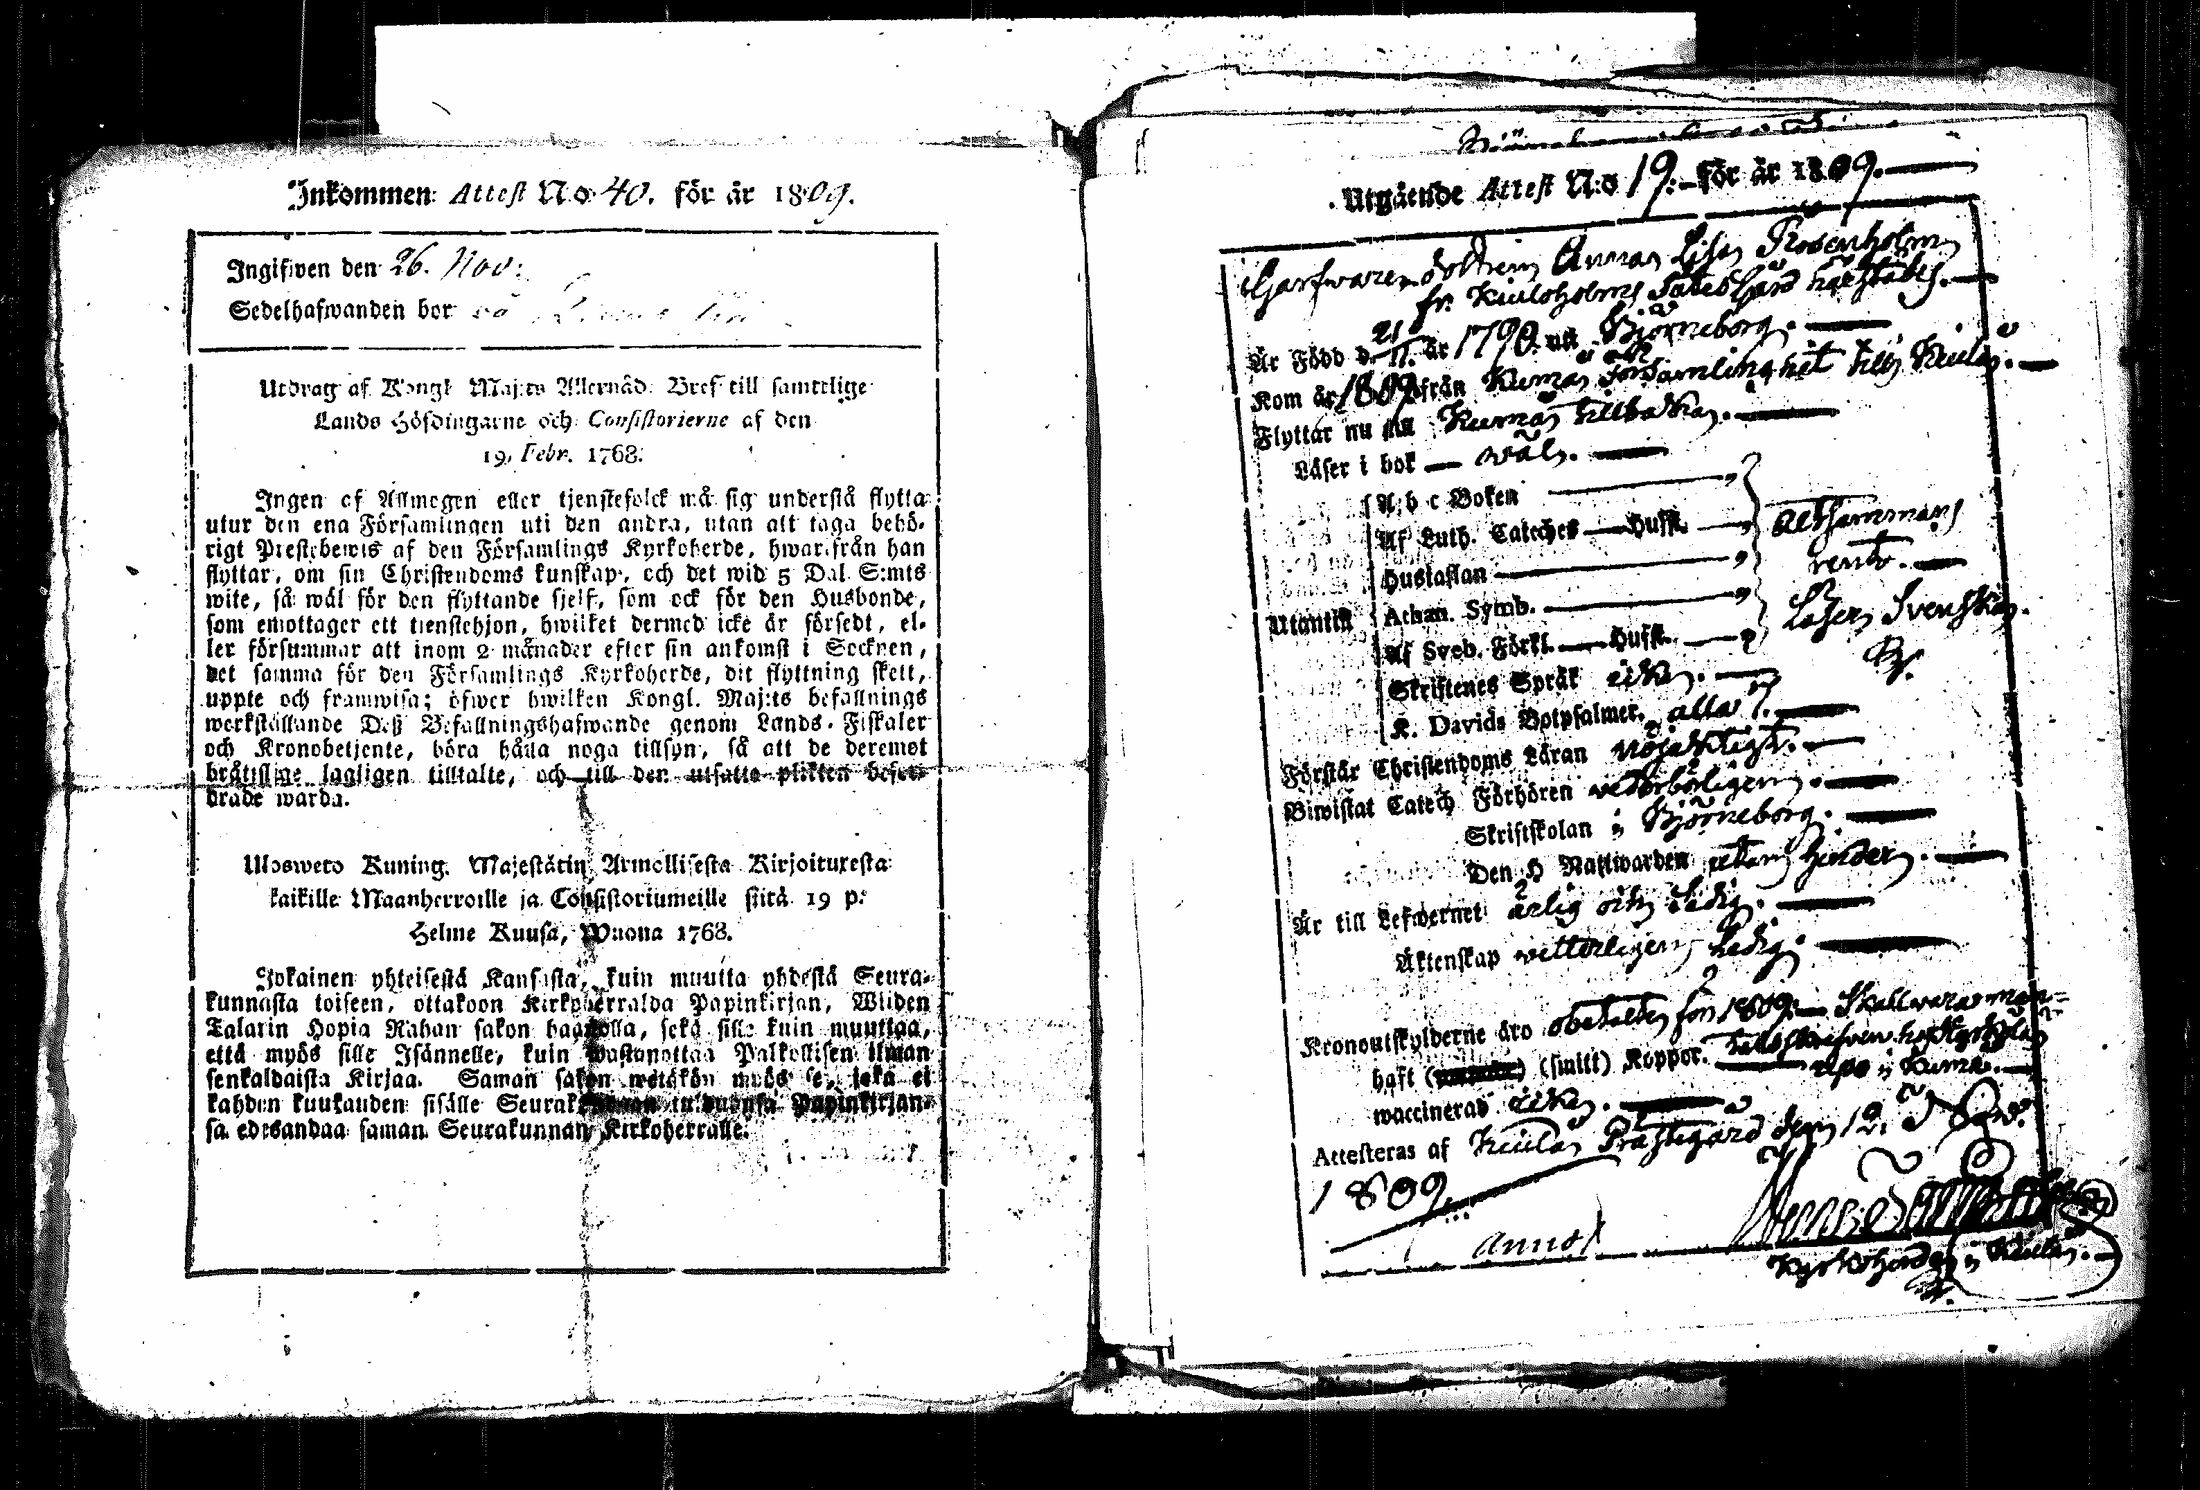 Inkommen Attest No 40. för år 1809.
Ingifwen den 26. Nov:
Sedelhafwanden bor
Utdrag af Kongl Maj:ts Allernåd. Bref till samtelige
Lands Höfdingarne och Consistorierne af den
19. Febr. 1768.
Ingen af Allmogen eller tjenstefolck må sig understå flytta
utur den ena Församlingen uti den andra, utan att taga behö-
rigt Prestebewis af den Församlings Kyrkoherde, hwarifrån han
flyttar, om sin Christendoms kunskap, och det wid 5 Dal. S:mts
wite, så wäl för den flyttande sjelf, som ock för den Husbonde,
som emottager ett tienstehjon, hwilket dermed icke är försedt, el-
ler försummar att inom 2 månader efter sin ankomst i Socknen,
det samma för den Församlings Kyrkoherde, dit flyttning skett,
uppte och framwisa; öfwer hwilken Kongl. Maj:ts befallnings
werkställande Deß Befallningshafwande genom Lands-Fiskaler
och Kronobetjente, böra hålla noga tillsyn, så att de deremot
bråttslige lagligen tilltalte, och till den utsatte plikten befor-
drade warda.
Uloswedo Kuning. Majestätin Armollisesta Kirjoituxesta
kaikille Maanherroille ja Consistoriumeille siitä 19 p:
Helme Kuusa, Wuona 1768.
Jokainen yhteisestä Kansasta, kuin muutta yhdestä Seura-
kunnasta toiseen, ottakoon Kirkoherralda Papinkirjan, Wiiden
Talarin Hopia Rahan sakon haastolla, sekä sille kuin muuttaa,
että myös sille Isännelle, kuin wastanottaa Palkollisen ilman
senkaldaista Kirjaa. Saman sakon wetäkön myös se, joka ei
kahden kuukauden sisälle Seurakunnan tulduansa Papinkirjan-
sa edesandaa saman Seurakunnan Kirkoherralle.
Utgående Attest N:o 19. för år 1809.
Garfwaredottren Anna Lisa Rosenholm
fr. Kiuloholms Säteegård härstädes.
Är Född d. 21/11. år 1790. uti Björneborg.
Kom år 1809 från Kumo församling hit till Kiulo.
Flyttar nu till Kumo tillbaka.
Läser i bok — wäl.
A b c Boken
Af Luth. Cateches — Hufst. altsammans
Hustaflan rent.
Utantill Athan. Symb. Läser Svenska.
Af Sveb. Förkl. — Hufst.
Skriftenes Språk icke.
K. Davids Botpsalmer. alla 7.
Förstår Christendoms Läran nöjaktigt.
Biwistat Catech Förhören wederbörligen.
Skriftskolan i Björneborg.
Den H Nattwarden utan hinder.
Är till Lefwernet ärlig och Sedig.
Äktenskap wetterligen Ledig.
Kronoutskylderne äro obetalta för 1809. Skall vara man-
haft (smitt) Koppor.
waccinerad icke. i Kumo.
Attesteras af Kiulo Prästegård den 12. Nov.
1809.
Kyrkoherde i Kiulo.